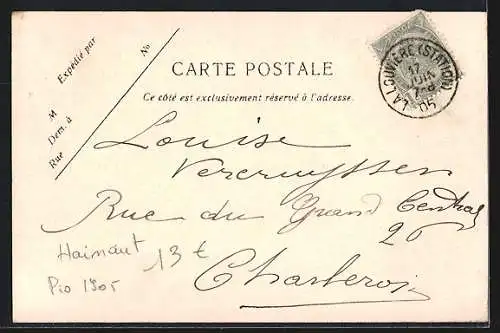 Expédié par
No
M
Dem. à
Rue
CARTE POSTALE
Ce côté est exclusivement réservé à l'adresse.
LA LOUVIÈRE (STATION)
17
JUIN
7-8
05
Louise
Vercruyssen
Rue du Grand Central
26
Charleroi
Hainaut
13 €
Pio 1905